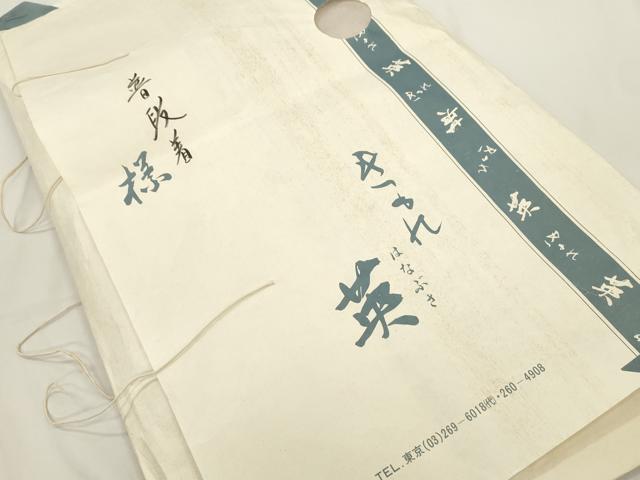 普段着
様
きもの
英
はなぶさ
TEL.東京(03)269-6018(代)・260-4908
英
きもの
英
きもの
英
きもの
英